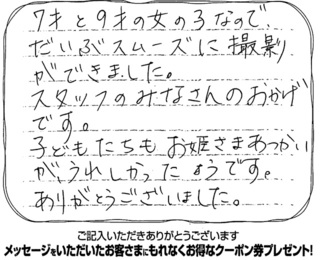 7才と9才の女の子なので、
だいぶスムーズに撮影
ができました。
スタッフのみなさんのおかげ
です。
子どもたちもお姫さまあつかい
が、うれしかったようです。
ありがとうございました。
ご記入いただきありがとうございます
メッセージをいただいたお客さまにもれなくお得なクーポン券プレゼント!